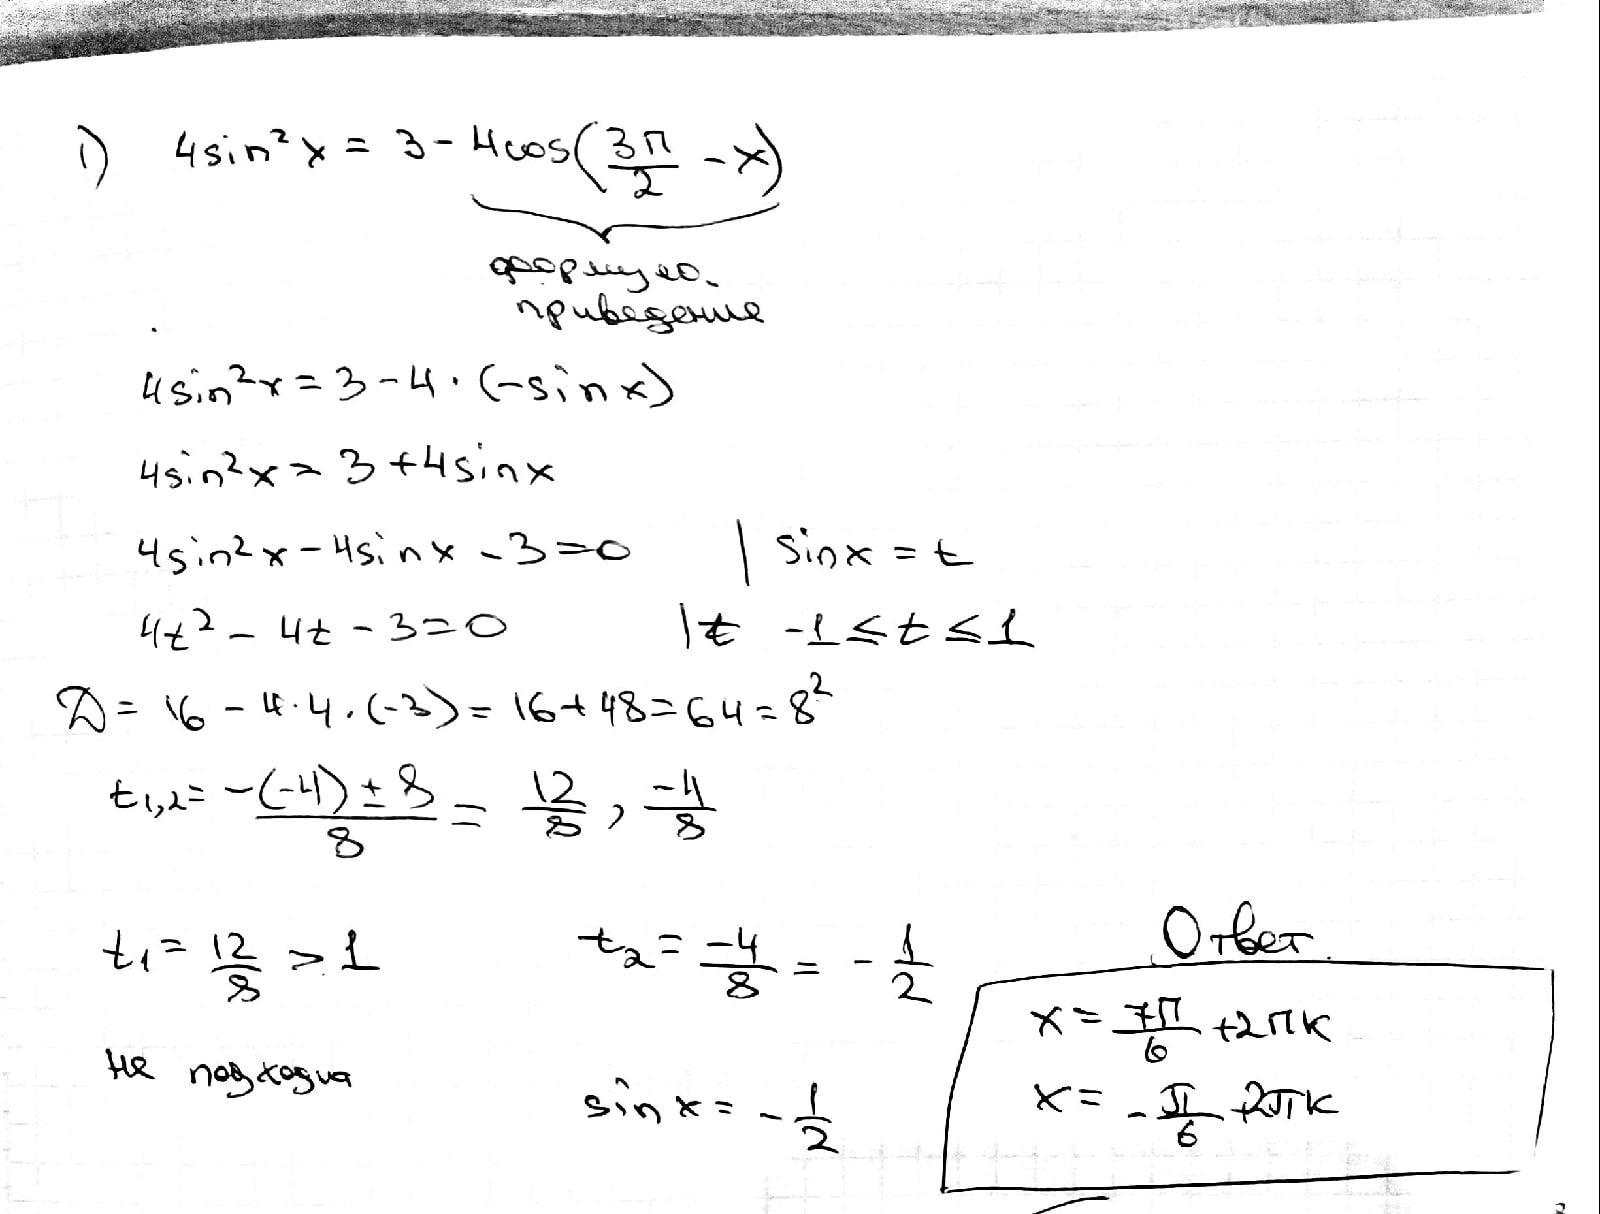 1) 4sin²x = 3 - 4cos(3π/2 - x)
формула
приведение
4sin²x = 3 - 4 · (-sinx)
4sin²x = 3 + 4sinx
4sin²x - 4sinx - 3 = 0 | sinx = t
4t² - 4t - 3 = 0 | t -1 ≤ t ≤ 1
D = 16 - 4·4·(-3) = 16 + 48 = 64 = 8²
t1,2 = (-(-4) ± 8)/8 = 12/8, -4/8
t₁ = 12/8 > 1 t₂ = -4/8 = -1/2
не подходит
sin x = -1/2
Ответ.
x = 7π/6 + 2πk
x = -π/6 + 2πk